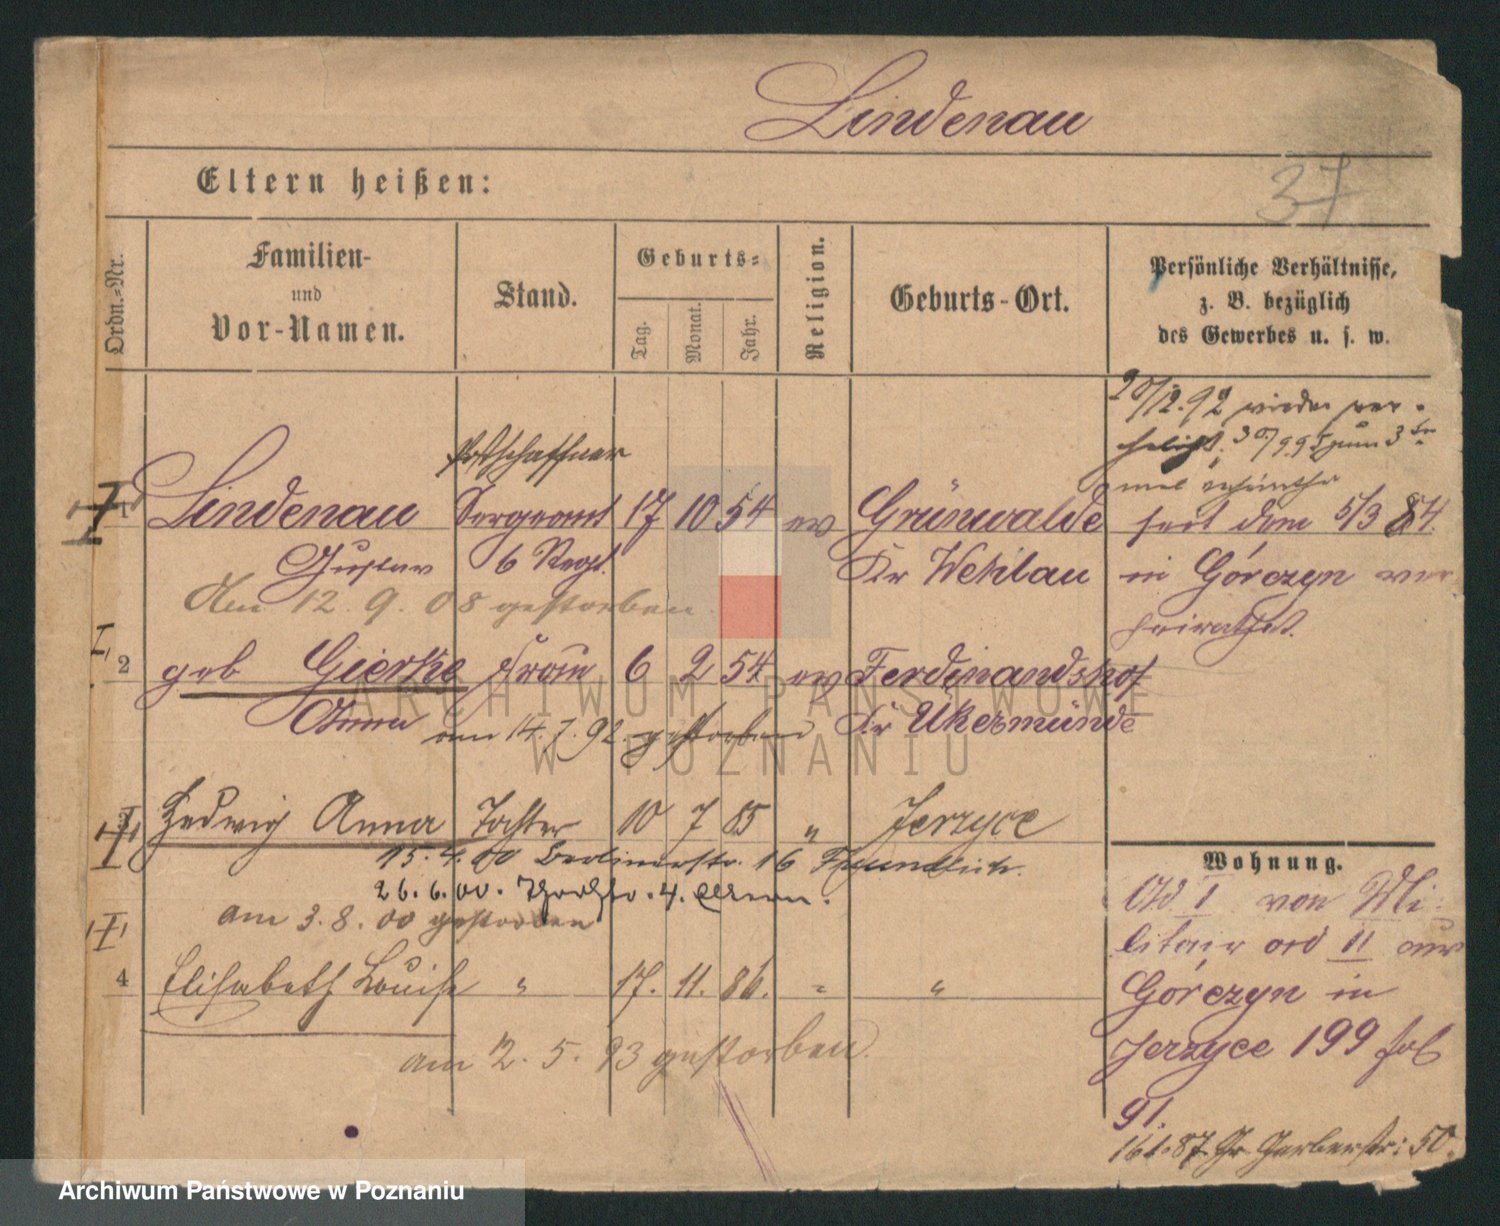 Lindenau
37
Eltern heißen:
Ordn.-Nr.
Familien-
und
Vor-Namen.
Stand.
Geburts-
Tag.
Monat.
Jahr.
Religion.
Geburts-Ort.
Persönliche Verhältnisse,
z. B. bezüglich
des Gewerbes u. s. w.
20/12.92 wieder ver-
ehelicht. 30/9 95 zum 3ten
mal
Postschaffner
1 Lindenau Sergeant 17 10 54 ev Grünwalde seit dem 5/3 84.
Gustav 6 Regt. Kr Wehlau in Górczyn ver
Am 12. 9. 08 gestorben.
heirathet.
2 geb Gierke Frau 6 2 54 ev Ferdinandshof
Anna am 14.7.92 gestorben Kr Ükermünde
3 Hedwig Anna Tochter 10 7 85 " Jerzyce
15. 4. 00 Berlinerstr. 16
26. 6. 00. 4.
am 3. 8. 00 gestorben
4 Elisabeth Louise " 17. 11. 86. " "
am 2. 5. 93 gestorben.
Wohnung.
Ad I von Mi-
litair ad II aus
Górczyn in
Jerzyce 199 fol
91.
16 1. 87 Gr. Gerberstr: 50.
ARCHIWUM PAŃSTWOWE
W POZNANIU
Archiwum Państwowe w Poznaniu